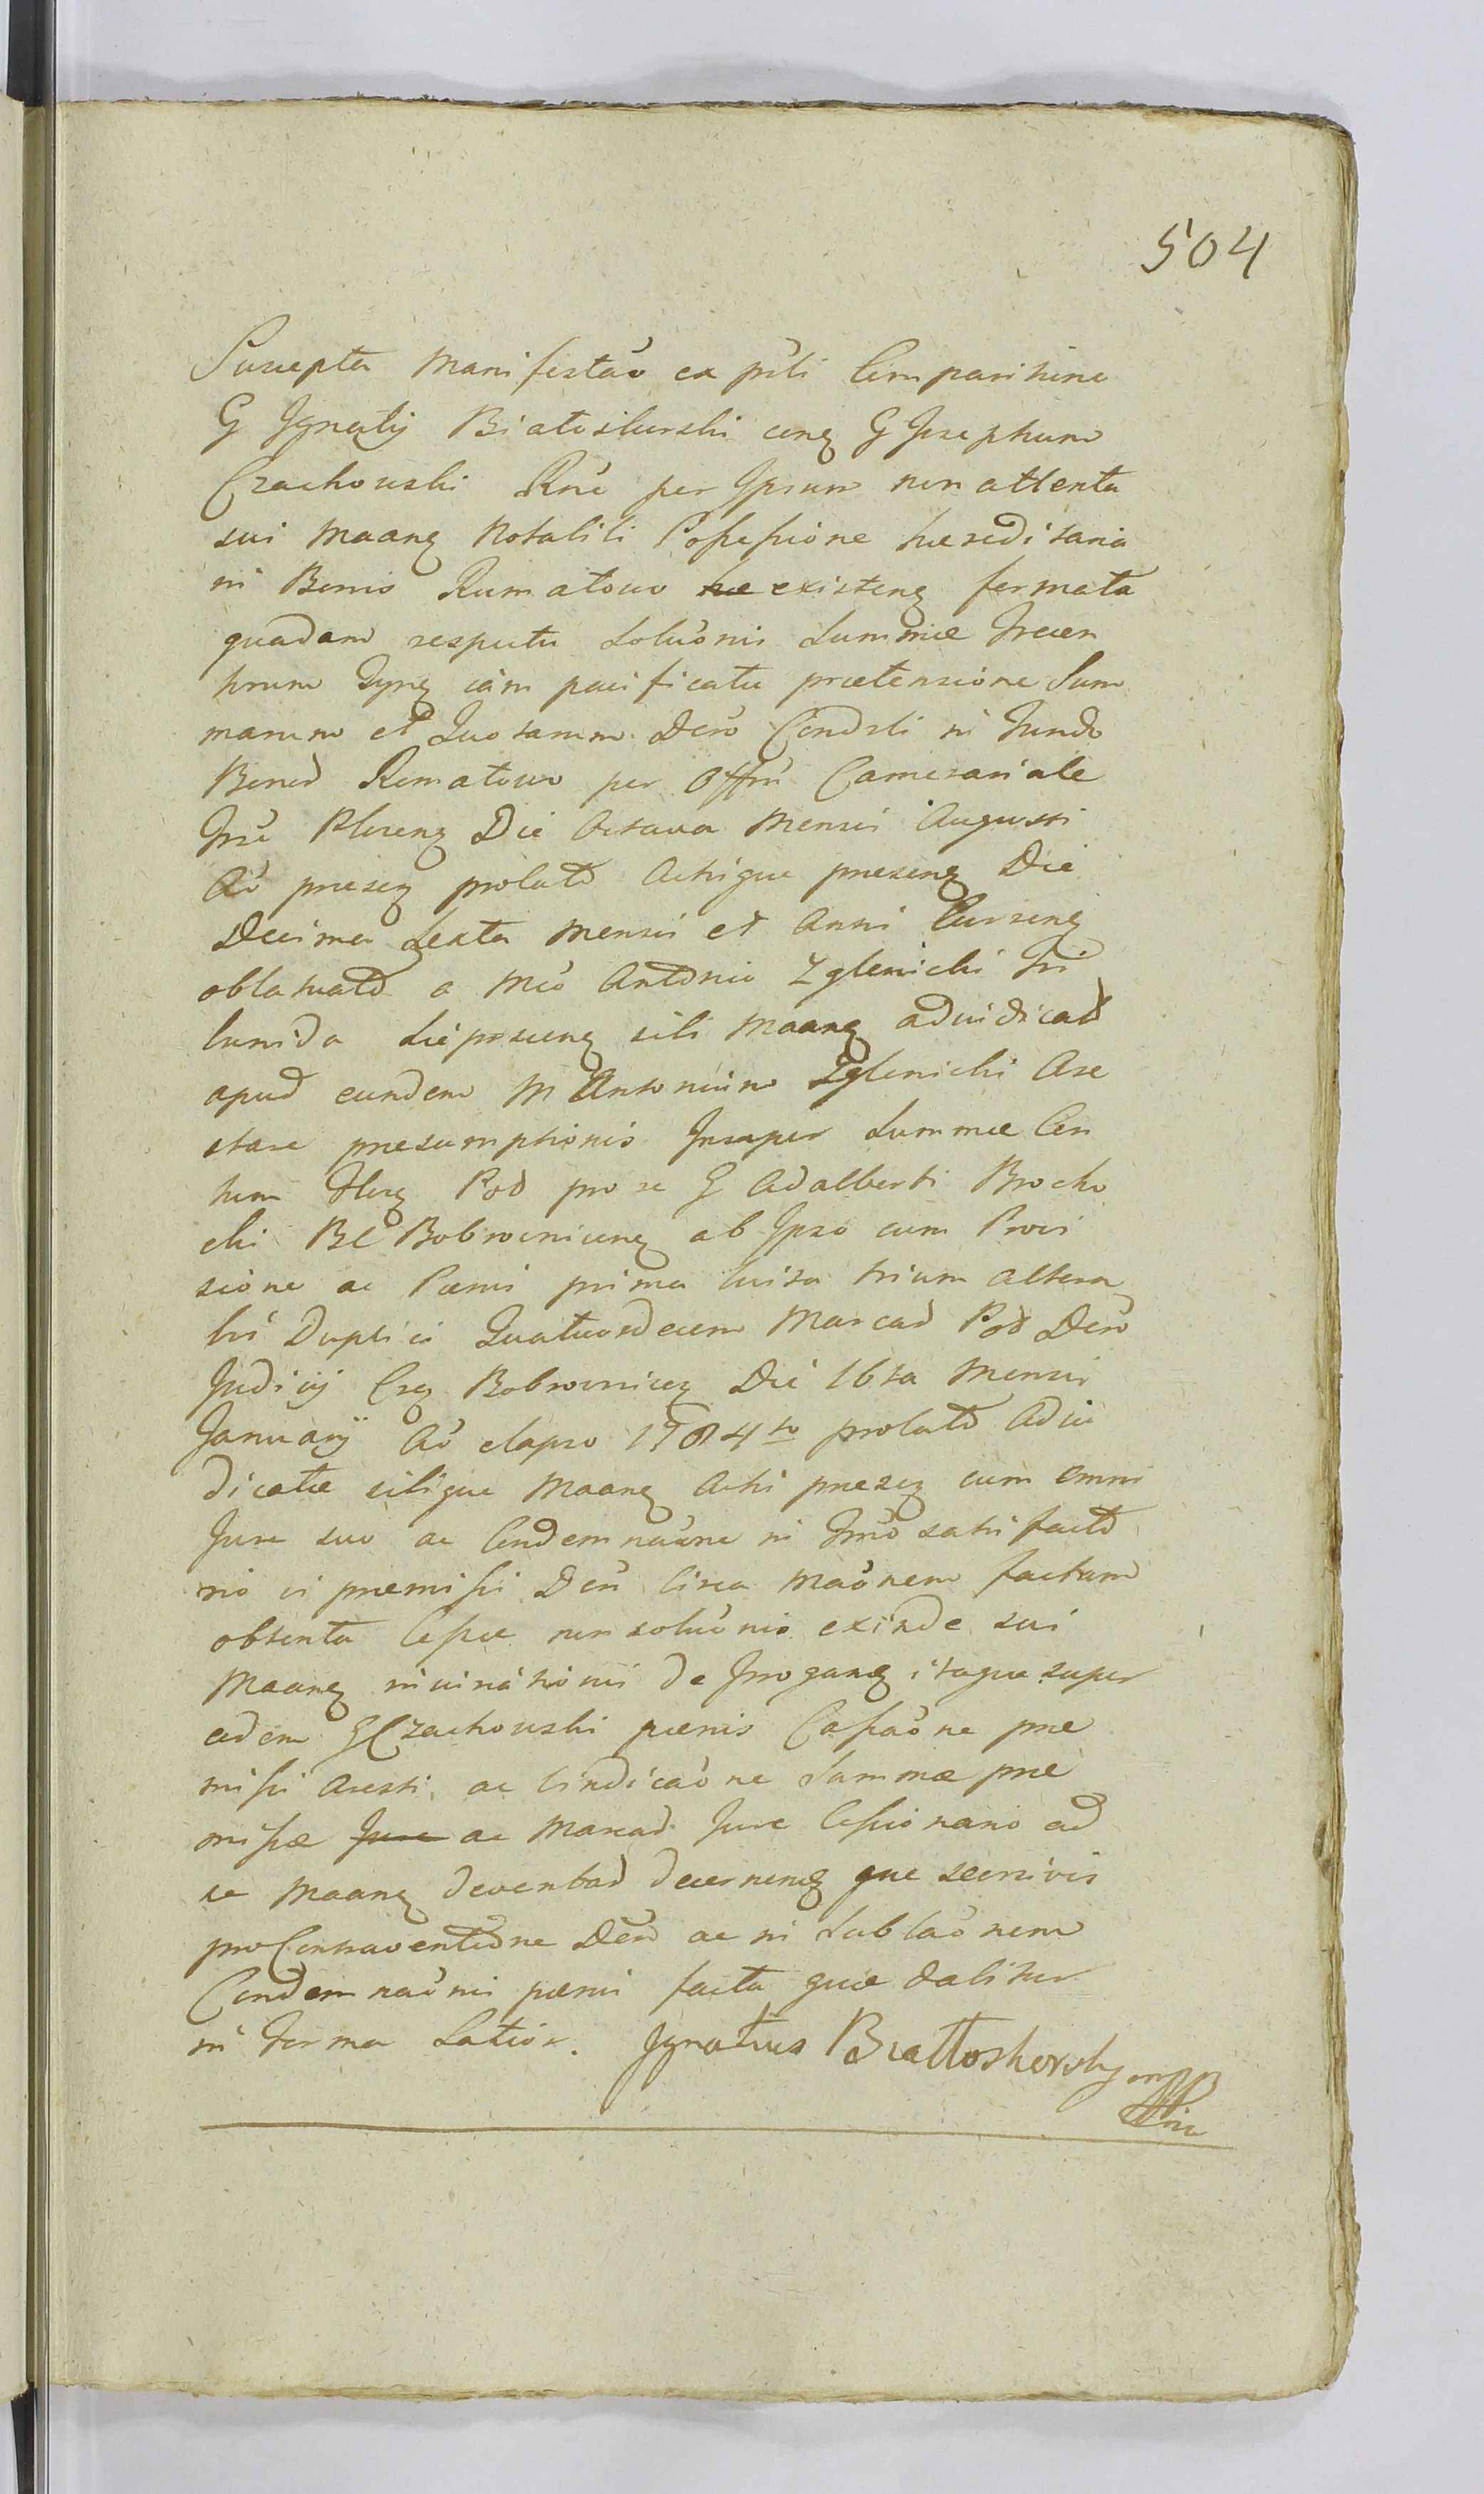 504
Suscepta Manifestaõ ex pñti Comparitione
G Ignatij Białoskurski conq G Josephum
Czachowski Rnẽ per Ipsum non attenta
sui Maanq Notabili Possessione hæreditaria
in Bonis Rumatowo hæ existenq formata
quadam respectu Soluõnis Summæ Trecen
torum iam pacificatæ prætensione Sum
marum et Quotarum Decõ Condẽti in fundo
Bonod Rumatowo per Offiũ Camerariale
Trræ Plocenq Die Octava Mensis Augusti
Aõ præseq prolatō Actisque præsenq Die
Decima Sexta Mensis et Anni Currenq
oblatuatō a Mco Antonio Zglenicki Tri
buniда Sieprcenq sibi Maanq adiudicad
apud eundem M Antonium Zglenicki Are
state præsumptionis Insuper Summæ Cen
tum Flrq Pod pro se G Adalberti Brocho
cki BC Bobrownicenq ab Ipso cum Provi
sione ac Pænis prima luita trium altera
bis Duplici Quatuordecem Marcad Pod Decõ
Judicij Crq Bobrownicq Die 16ta Mensis
Januarij Aõ elapso 1784to prolatō Adiu
dicatæ sibique Maanq Acti præseq cum omni
Jure suo ac Condemnaõne in Trnõ satisfacto
rio ei præmissi Decũ circa Maõnem factam
obtenta Cessæ non soluõnis exinde sui
Maanq de Irroganq itaque super
eodem G Czachowski pænis Cassaõne præ
missi Aresti ac Vindicaõne Summæ præ
missæ Jure ac Marcad Jure Cessionario ad
se Maanq devenbad decernenq que secrivis
pro Contraventione Decõ ac in Sublaõnem
Condemnaõnis pænis facta quæ dabitur
in forma Latior. Ignatius Białłoskorsky mpp